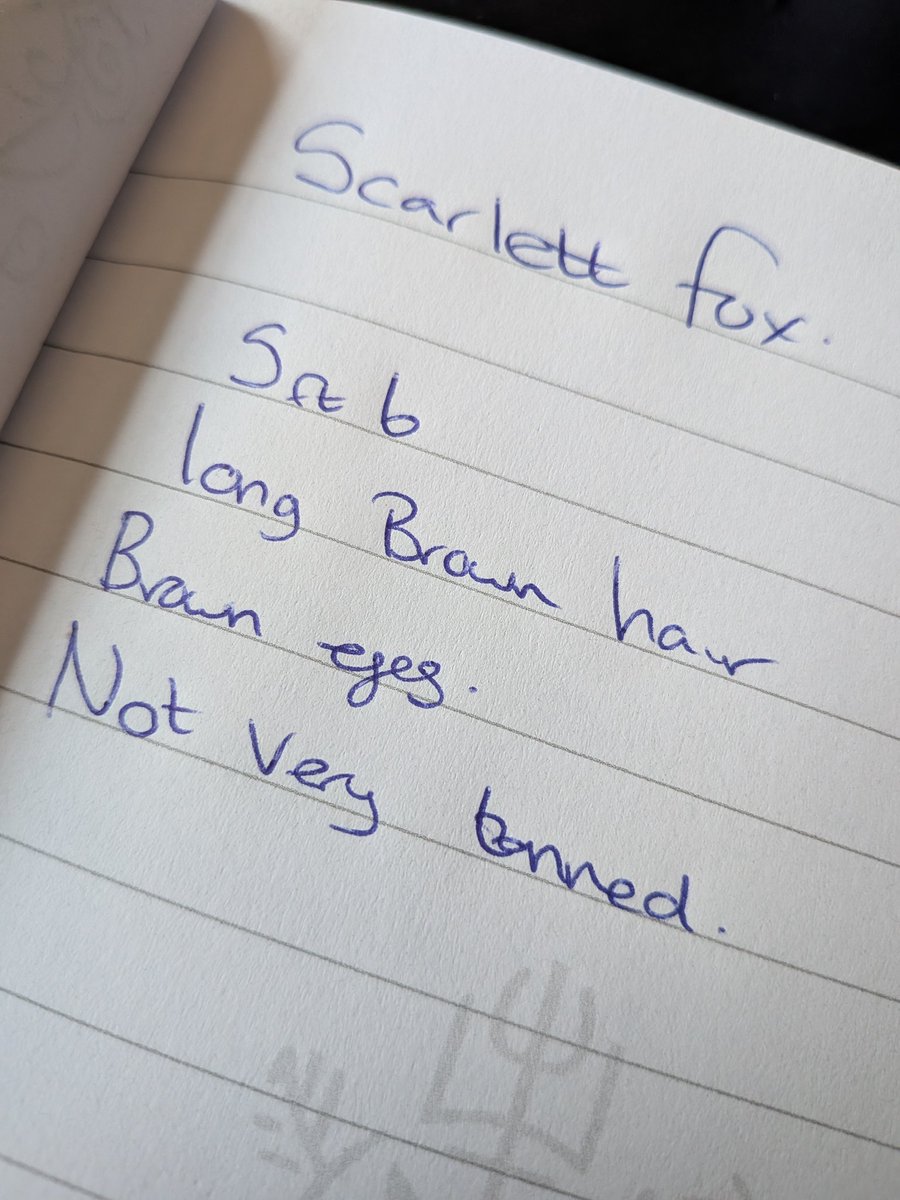 Scarlett fox.
5ft 6
long Brown hair
Brown eyes.
Not Very tonned.